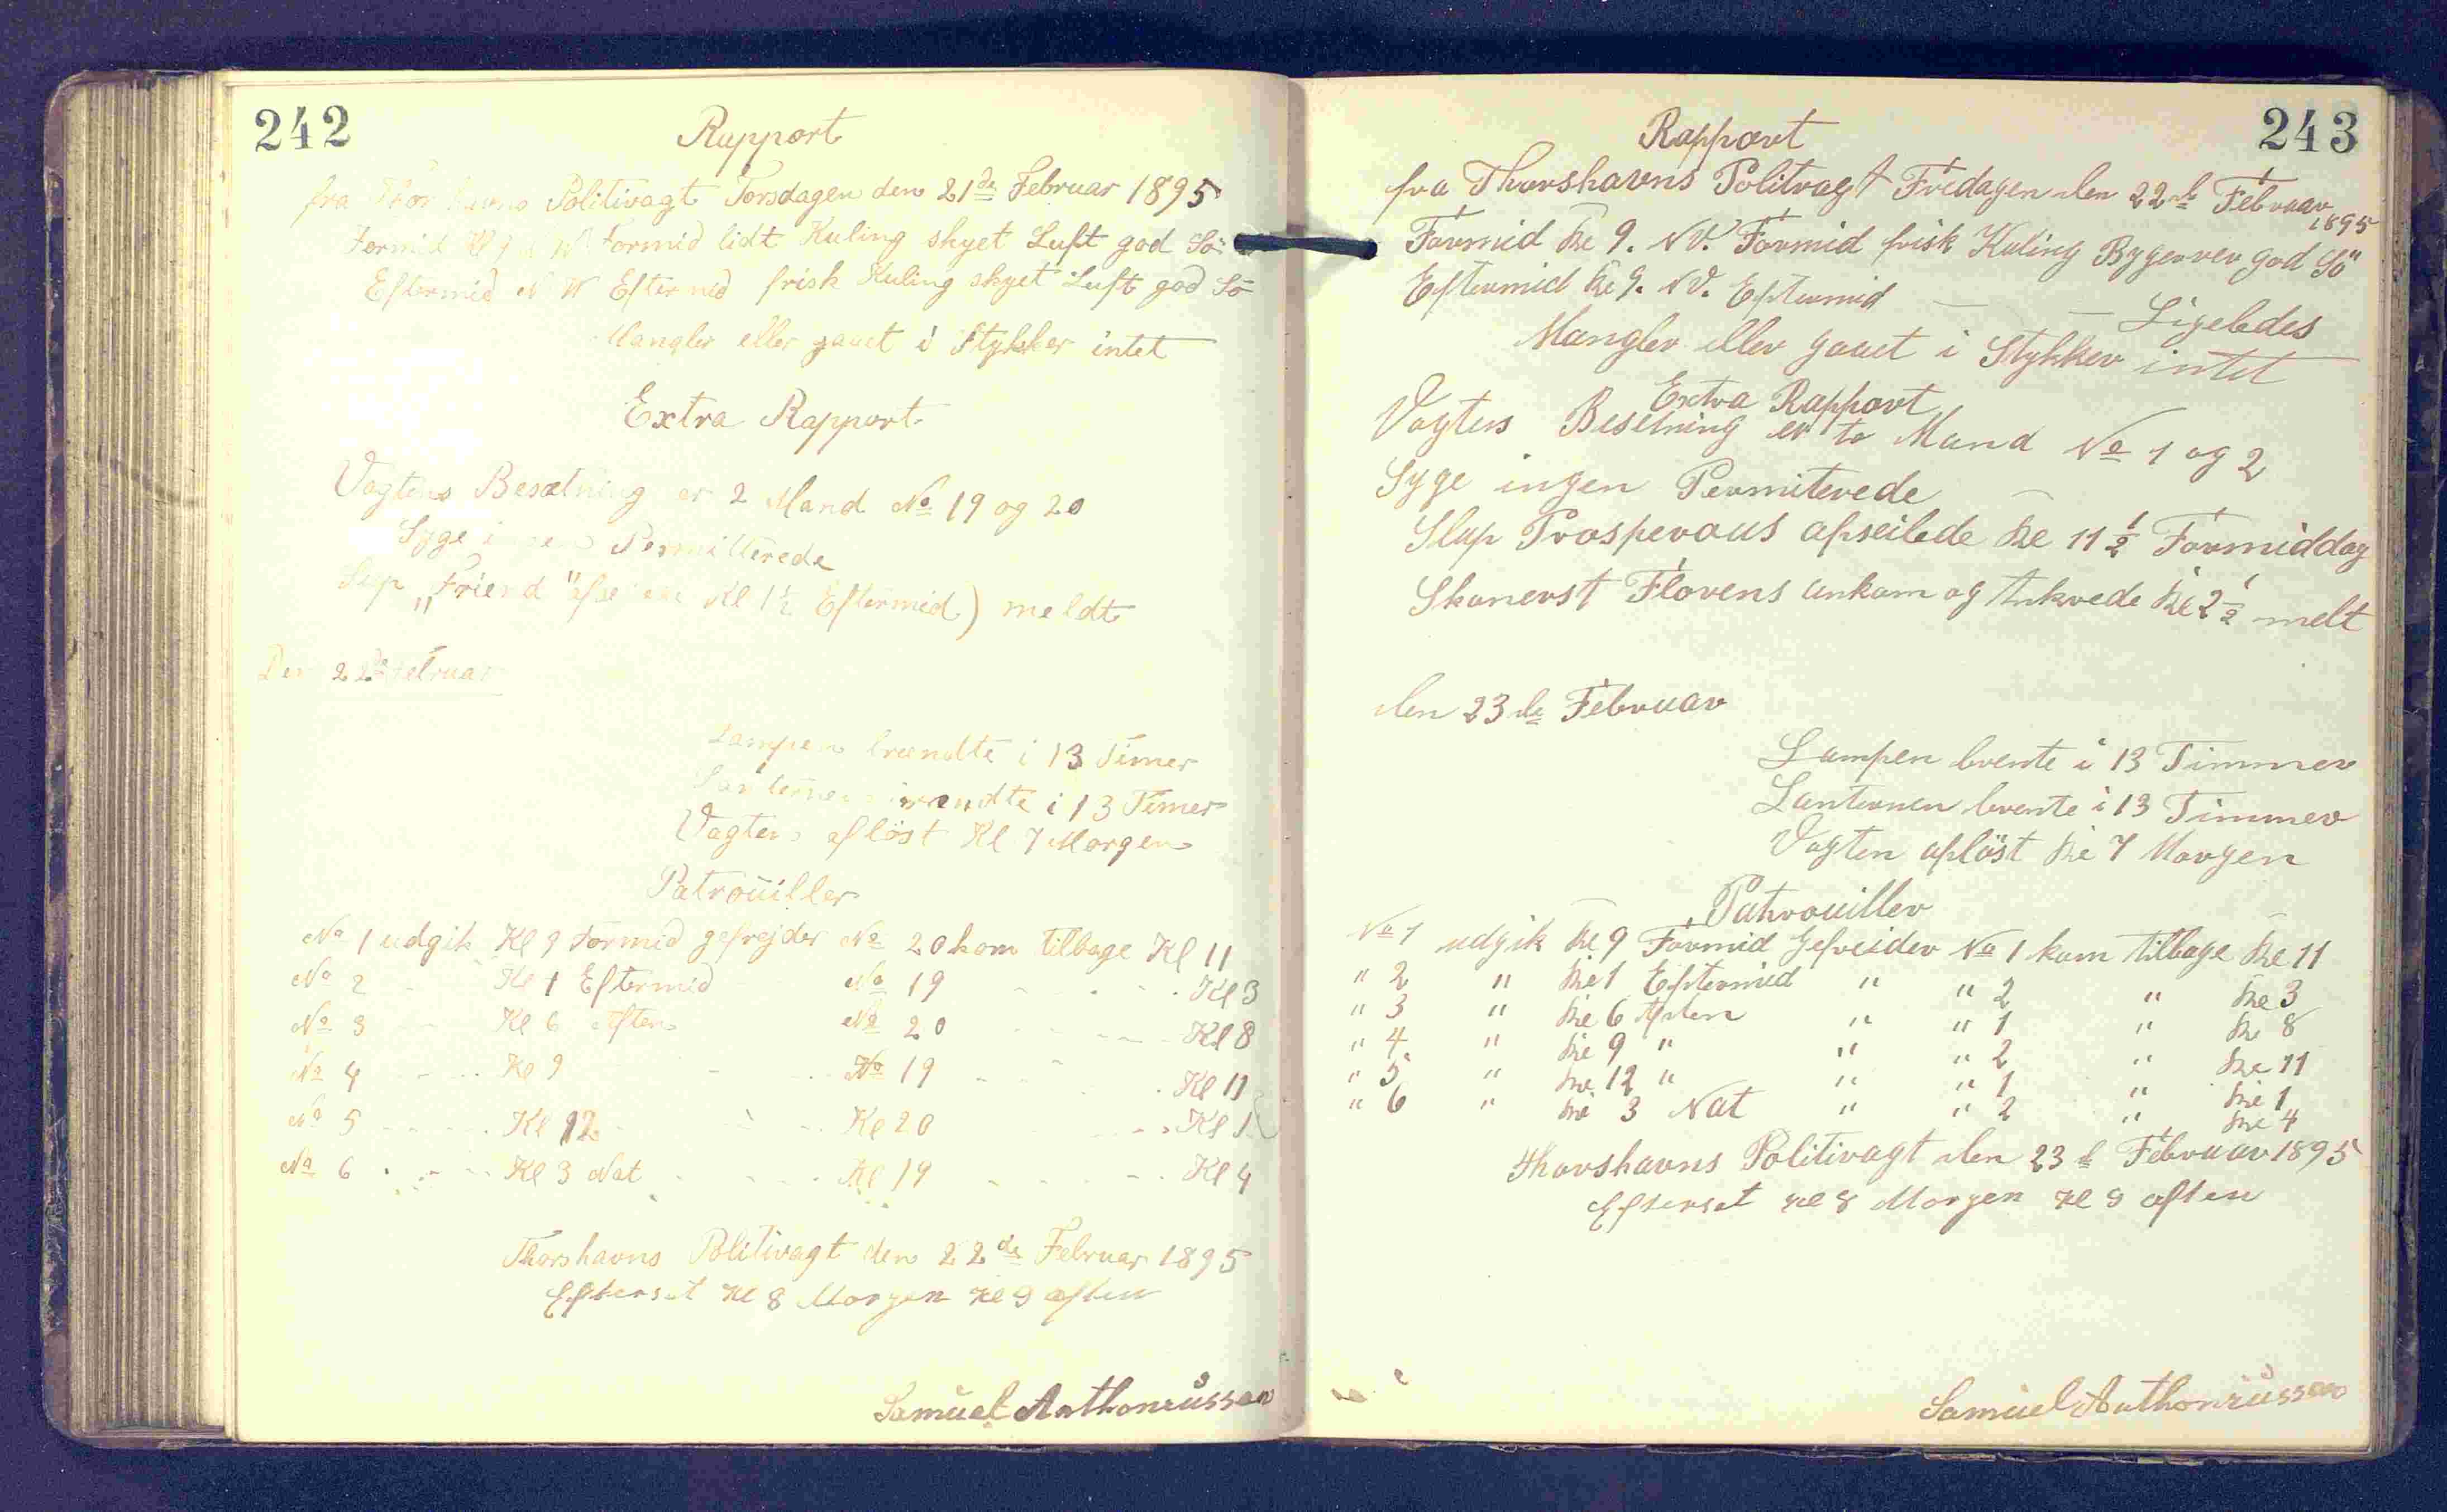 242
Rapport
fra Thorshavns Politivagt Torsdagen den 21de Februar 1895
Formid Kl 9 N W. Formid lidt Kuling skyet Luft god Sö
Eftermid N W Eftermid frisk Kuling skyet Luft god Sö
Mangler eller gaaet i Stykker intet
Extra Rapport
Vagtens Besætning er 2 Mand No 19 og 20
Syge ingen Permitterede
Slup „Friend" Kl 1½ Eftermid) meldt
Den 22de Februar
Lampen brændte i 13 Timer
Lanternen brændte i 13 Timer
Vagten aflöst Kl 7 Morgen
Patrouiller
No 1 udgik Kl 9 Formid gefrejder No 20 kom tilbage Kl 11
No 2 - Kl 1 Eftermid No 19 - - - Kl 3
No 3 - Kl 6 Aften No 20 - - - Kl 8
No 4 - - Kl 9 - - No 19 - - - Kl 11
No 5 - - - Kl 12 - - Kl 20 - - Kl 1
No 6 - - - Kl 3 Nat - - - Kl 19 - - - Kl 4
Thorshavns Politivagt den 22de Februar 1895
Efterset Kl 8 Morgen Kl 9 aften
Samuel Anthoniussen
243
Rapport
fra Thorshavns Politvagt Fredagen den 22de Februar
1895
Formid Kl 9. NV. Formid frisk Kuling Bygerver god Sö
Eftermid Kl 9. NV. Eftermid — — Ligeledes
Mangler eller gaaet i Stykker intet
Extra Rapport
Vagtens Besetning er to Mand No 1 og 2
Syge ingen Permiterede —
Slup Prosperous afseilede Kl 11½ Formiddag
Skonerst Florens ankom og Ankrede Kl 2½ melt
den 23de Februar
Lampen brente i 13 Timmer
Lanternen brente i 13 Timmer
Vagten aflöst Kl 7 Morgen
Patrouiller
No 1 udgik Kl 9 Formid Gefreider No 1 kom tilbage Kl 11
" 2 " Kl 1 Eftermid " " 2 " Kl 3
" 3 " Kl 6 Aften " " 1 " Kl 8
" 4 " Kl 9 " " " 2 " Kl 11
" 5 " Kl 12 " " " 1 " Kl 1
" 6 " Kl 3 Nat " " 2 " Kl 4
Thorshavns Politivagt den 23de Februar 1895
Efterset Kl 8 Morgen Kl 9 aften
Samuel Anthoniussen